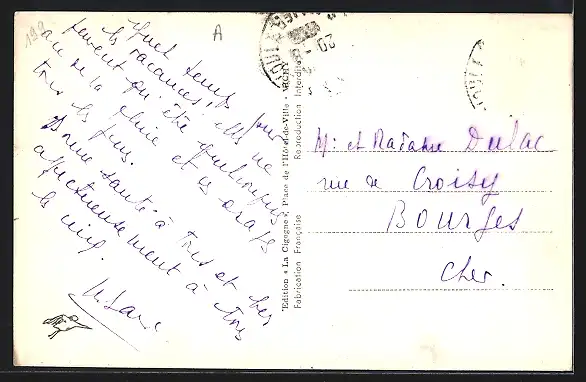 A
Quel temps pour
les vacances, elles ne
peuvent qu'être quelconques
avec de la pluie et
tous les jours.
Bonne santé à Tous et bien
affectueusement à Tous
les cinq.
Edition « La Cigogne », Place de l'Hôtel-de-Ville - VICHY
Fabrication Française Reproduction Interdite
Mr et Madame Dulac
rue de Croisy
Bourges
Cher.